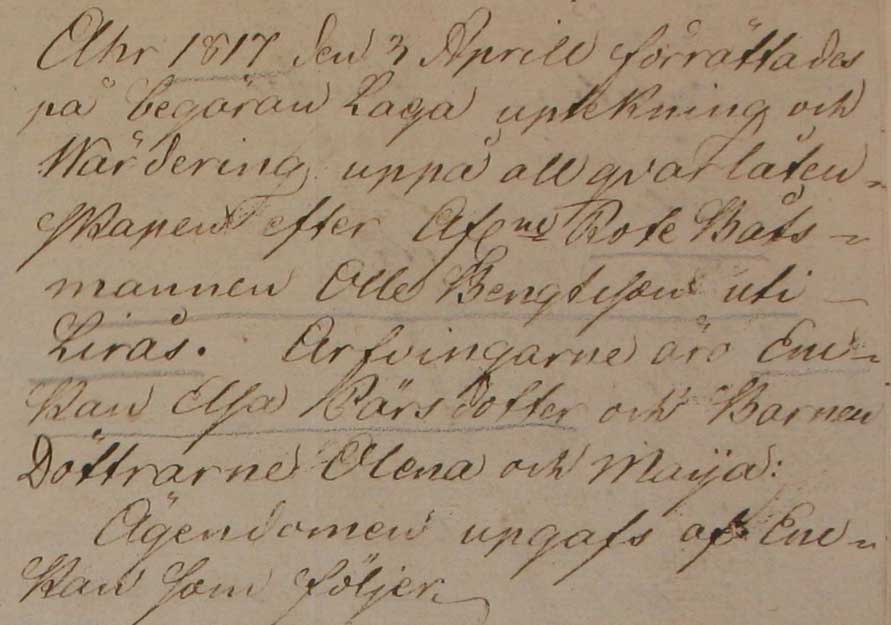 Åhr 1817 den 3 Aprill förrättades
på begäran Laga upteckning och
Wärdering uppå all qvarlåten-
skapen efter Afl:ne Rote Båts-
mannen Olle Bengtsson uti
Lirås. Arfvingarne äro Enc-
kan Elsa Pärsdotter och Barnen
Döttrarne Olena och Maija:
Ägendomen upgafs af Enc-
kan som följer.